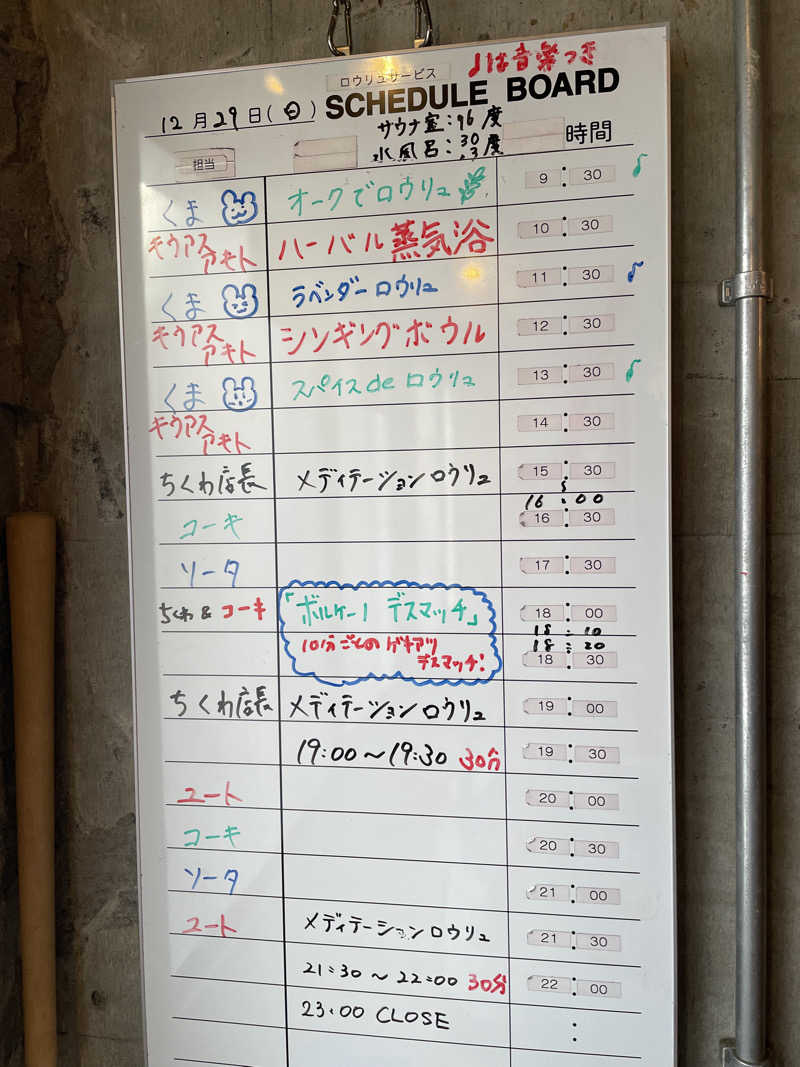 ロウリュサービス
♪は音楽つき
12月29日(日) SCHEDULE BOARD
サウナ室:96度
水風呂:30
13度
担当 時間
くま オークでロウリュ 9:30 ♪
キウアス アキト ハーバル蒸気浴 10:30
くま ラベンダーロウリュ 11:30 ♪
キウアス アキト シンギングボウル 12:30
くま スパイスdeロウリュ 13:30 ♪
キウアス アキト 14:30
ちくわ店長 メディテーションロウリュ 15:30
16:00
コーキ 16:30
ソータ 17:30
ちくわ&コーキ 「ボルケーノ デスマッチ」 18:00
18:10
10分ごとのゲキアツ 18:20
デスマッチ! 18:30
ちくわ店長 メディテーションロウリュ 19:00
19:00〜19:30 30分 19:30
ユート 20:00
コーキ 20:30
ソータ 21:00
ユート メディテーションロウリュ 21:30
21:30〜22:00 30分 22:00
23:00 CLOSE :